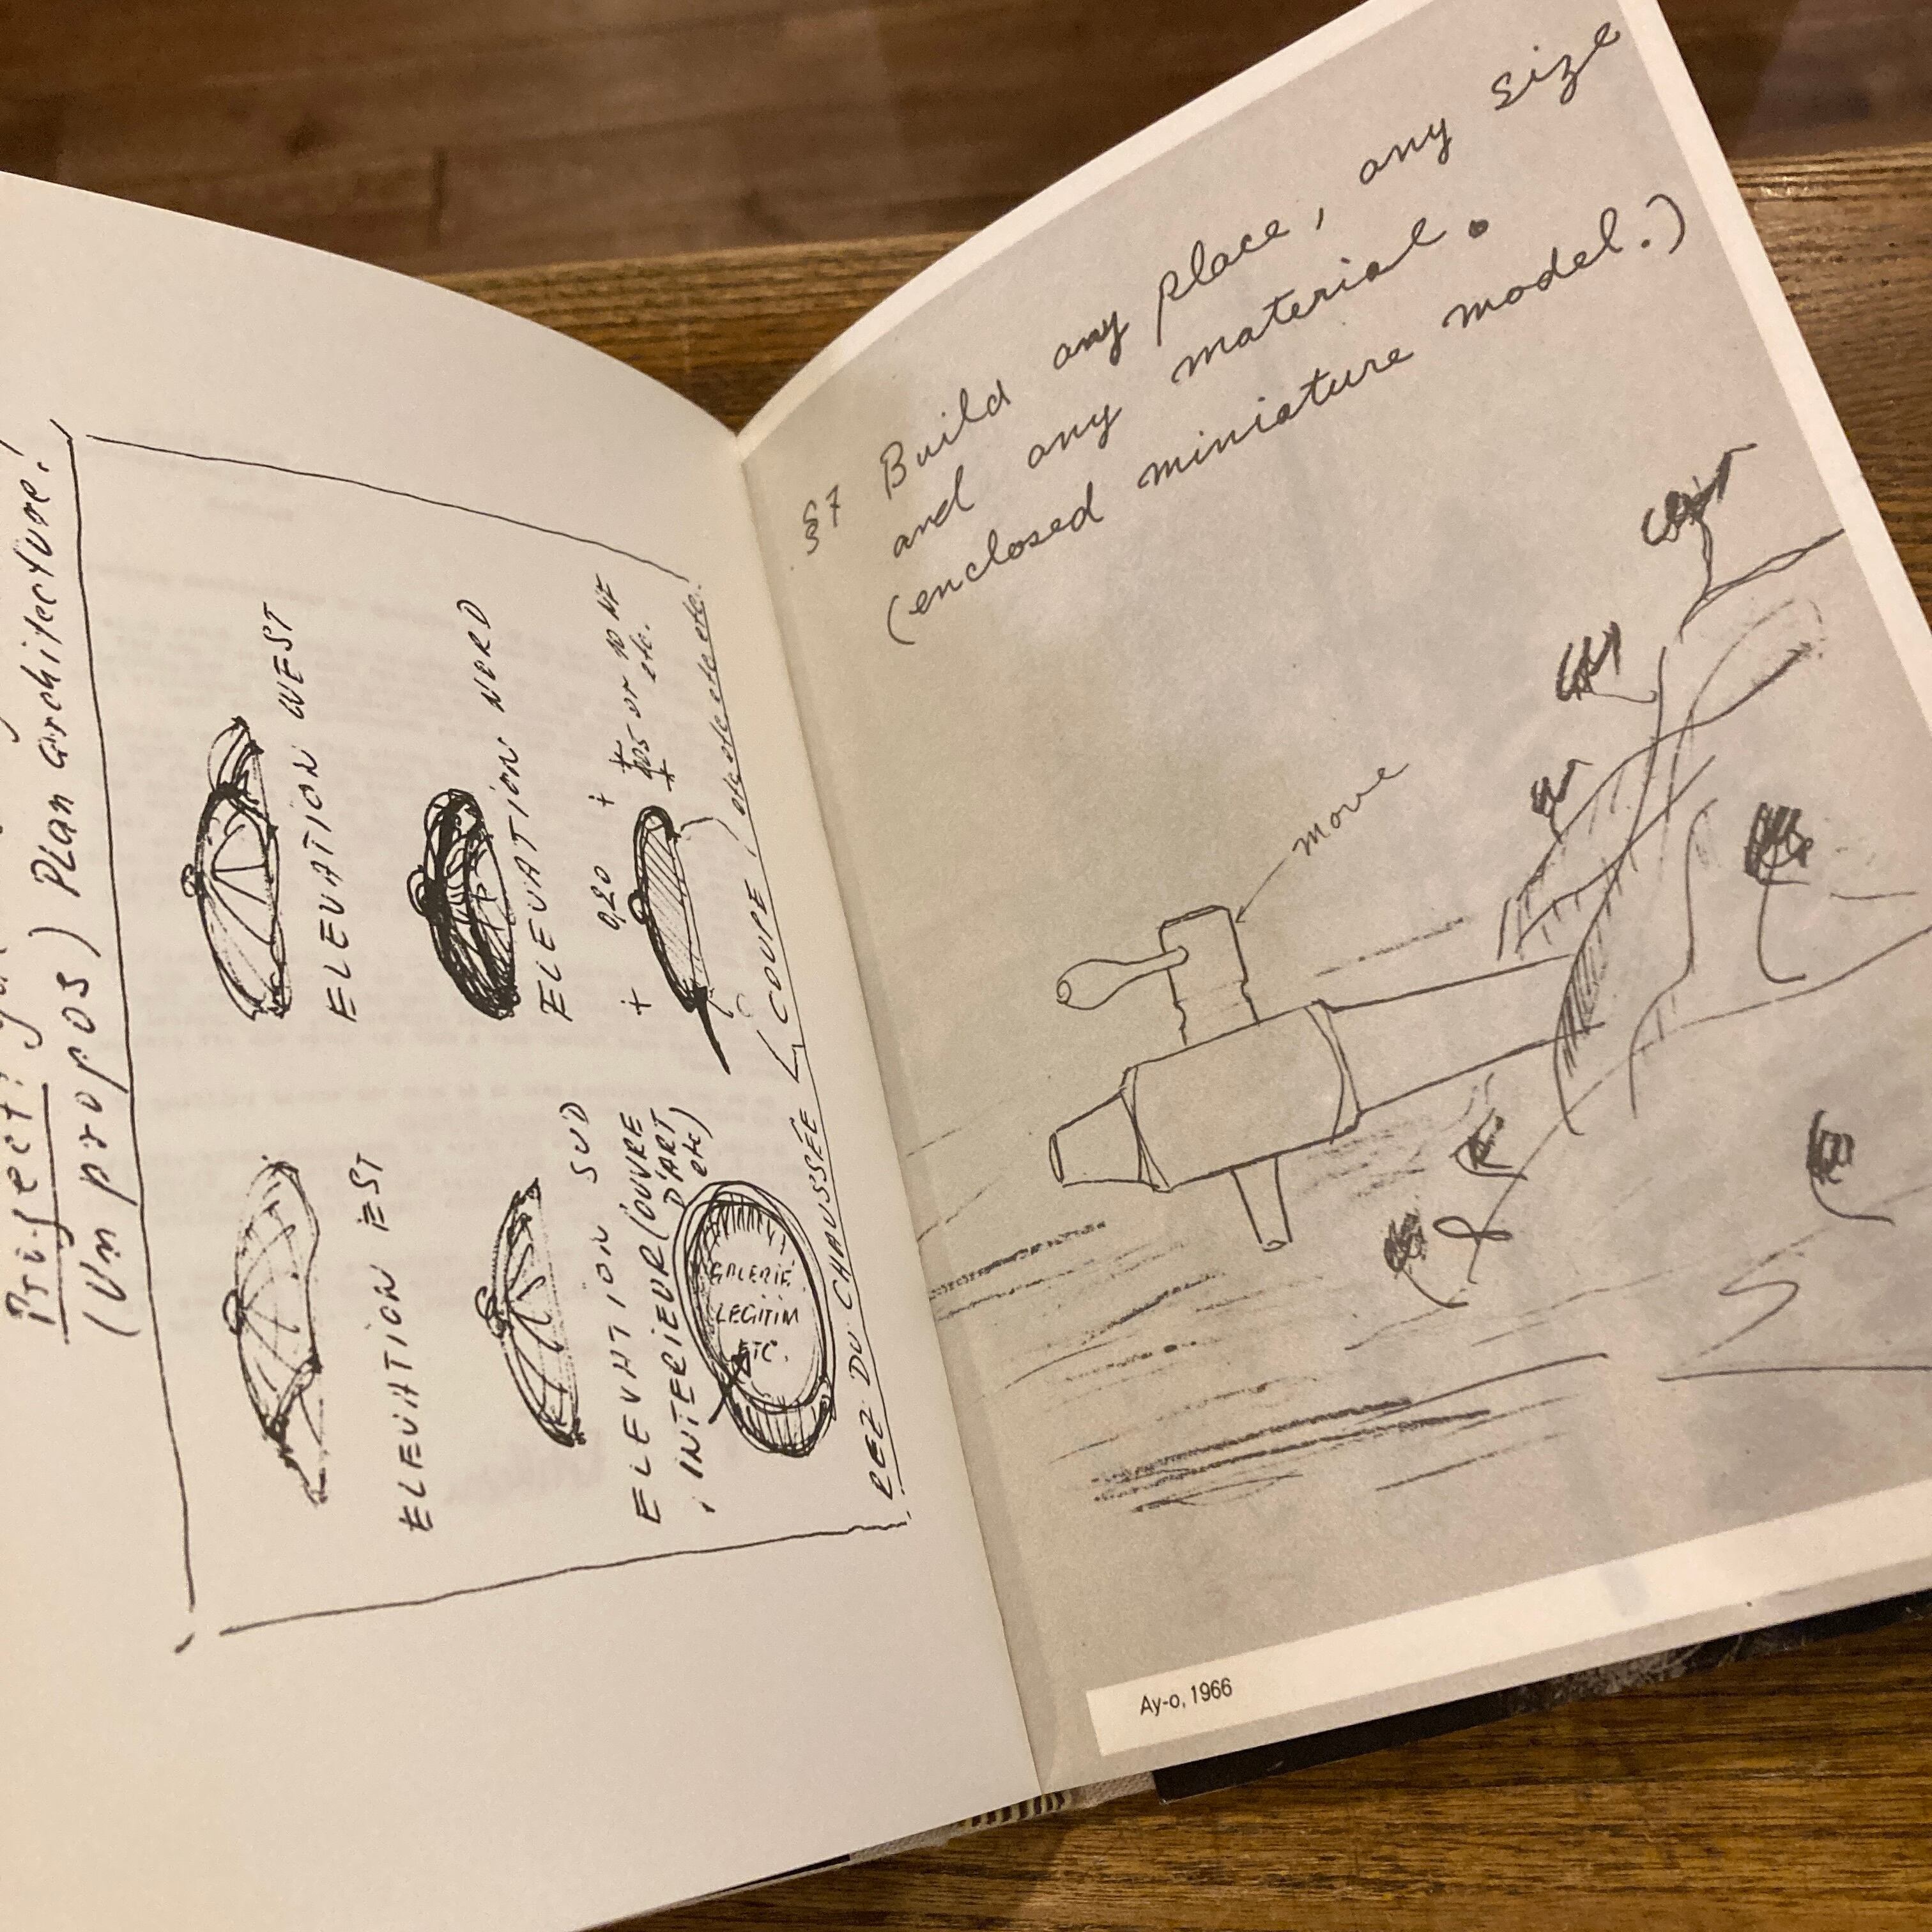 Project:
(Un propos) Plan architecture!
ELEVATION EST
ELEVATION WEST
ELEVATION SUD
ELEVATION NORD
INTERIEUR (OUVRE
D'ART
etc)
+ 0,20 +
etc.
GALERIE
LEGITIM
ETC.
REZ DU CHAUSSÉE
COUPE
etc etc etc etc.
§7 Build any place, any size
and any material.
(enclosed miniature model.)
move
Ay-o, 1966